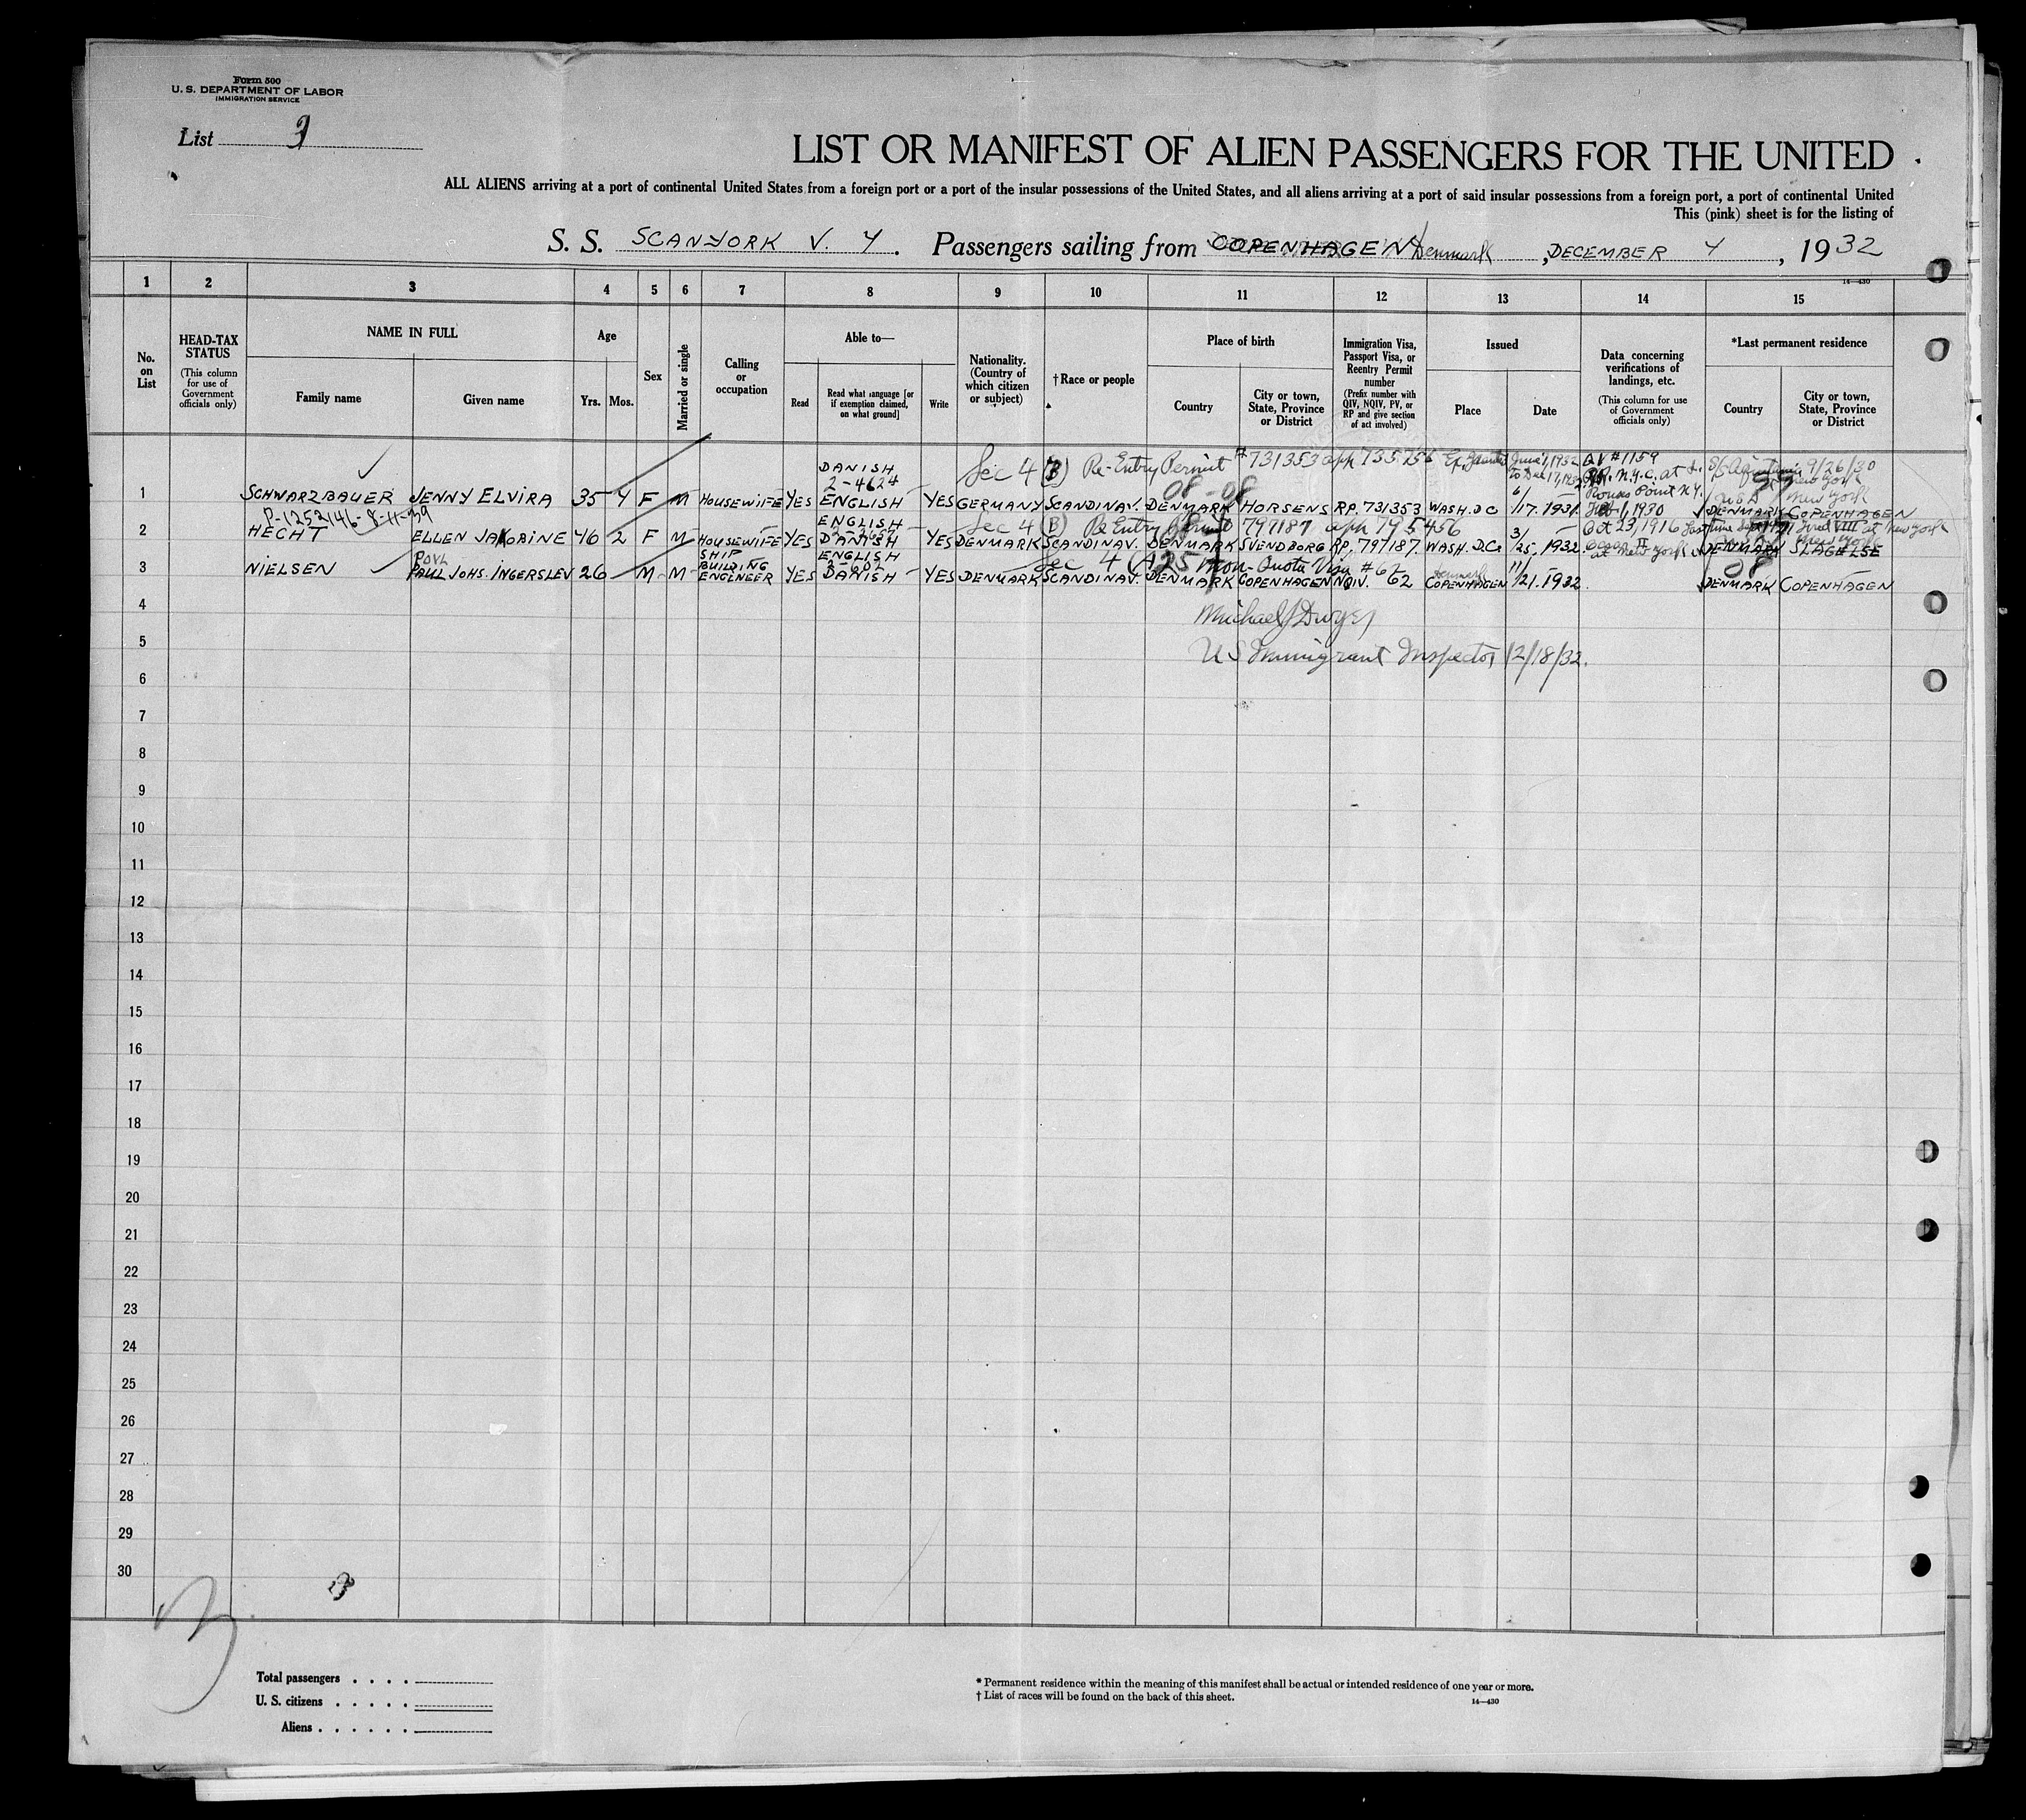 Form 500
U. S. DEPARTMENT OF LABOR
IMMIGRATION SERVICE
List 3
LIST OR MANIFEST OF ALIEN PASSENGERS FOR THE UNITED
ALL ALIENS arriving at a port of continental United States from a foreign port or a port of the insular possessions of the United States, and all aliens arriving at a port of said insular possessions from a foreign port, a port of continental United
This (pink) sheet is for the listing of
S. S. SCANYORK V. 4. Passengers sailing from COPENHAGEN Denmark, DECEMBER 4, 1932
1 2 3 4 5 6 7 8 9 10 11 12 13 14 15
14—430
No. on List
HEAD-TAX STATUS (This column for use of Government officials only)
NAME IN FULL
Family name
Given name
Age
Yrs. Mos.
Sex
Married or single
Calling or occupation
Able to—
Read
Read what language [or if exemption claimed, on what ground]
Write
Nationality. (Country of which citizen or subject)
†Race or people
Place of birth
Country
City or town, State, Province or District
Immigration Visa, Passport Visa, or Reentry Permit number (Prefix number with QIV, NQIV, PV, or RP and give section of act involved)
Issued
Place
Date
Data concerning verifications of landings, etc. (This column for use of Government officials only)
*Last permanent residence
Country
City or town, State, Province or District
Sec 4 (B) Re-Entry Permit #731353 app 735756 June 1, 1932 QV #1159 9/26/30
DANISH
2-4624 to Dec 17, 1932 New York
08-08 Rouses Point N.Y. USA New York
1 SCHWARZBAUER JENNY ELVIRA 35 4 F M HOUSEWIFE YES ENGLISH YES GERMANY SCANDINAV. DENMARK HORSENS RP. 731353 WASH. D C 6/17. 1931. Feb 1, 1930 DENMARK COPENHAGEN
P-1252146-8-11-39
ENGLISH Sec 4 (B) Re Entry Permit 797187 app 795456 Oct 23, 1916
2 HECHT ELLEN JAKOBINE 46 2 F M HOUSEWIFE YES DANISH YES DENMARK SCANDINAV. DENMARK SVENDBORG RP. 797187. WASH. D.C. 3/25. 1932. DENMARK SLAGELSE
POVL SHIP BUILDING ENGLISH 2-602 Sec 4 (A 25 Non-Quota Visa #62 Denmark 08
3 NIELSEN PAUL JOHS. INGERSLEV 26 M M ENGENEER YES DANISH YES DENMARK SCANDINAV. DENMARK COPENHAGEN NQIV. 62 COPENHAGEN 11/21. 1932. DENMARK COPENHAGEN
4
Michael J Dwyer
5
US Immigrant Inspector 12/18/32.
6
7
8
9
10
11
12
13
14
15
16
17
18
19
20
21
22
23
24
25
26
27
28
29
30
3
3
Total passengers . . . .
U. S. citizens . . . . .
Aliens . . . . . .
* Permanent residence within the meaning of this manifest shall be actual or intended residence of one year or more.
† List of races will be found on the back of this sheet.
14—430